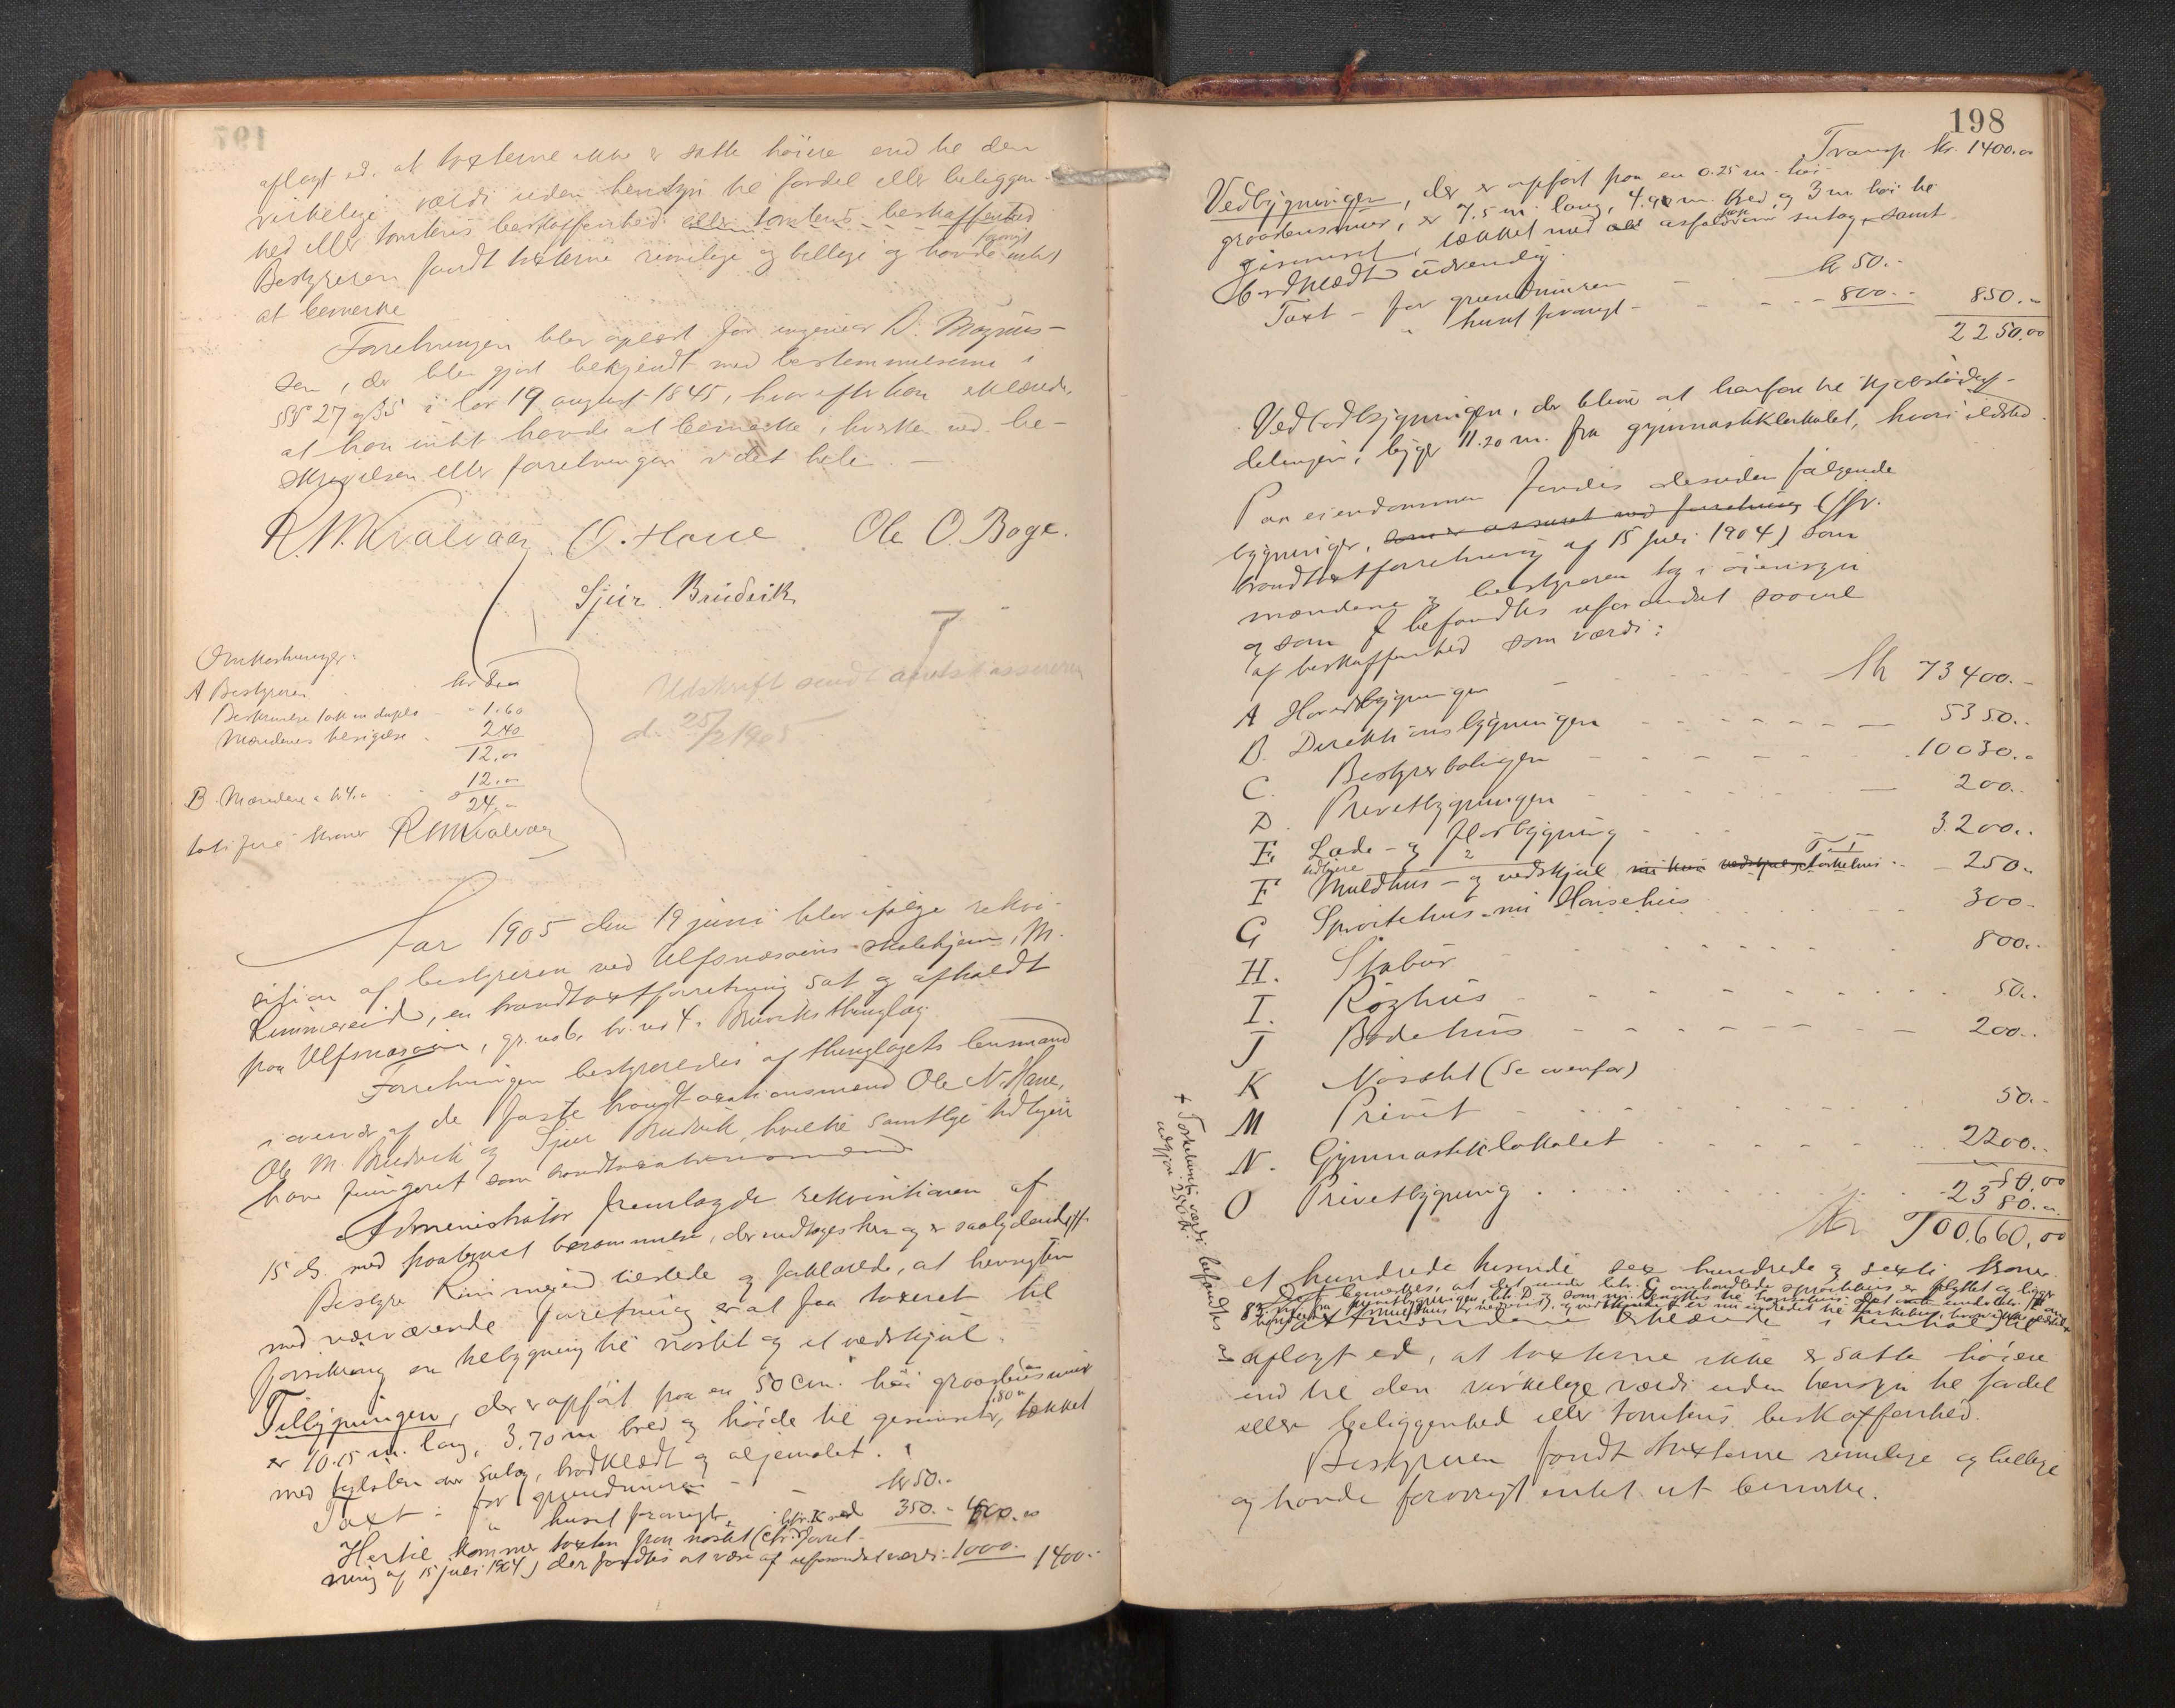 aflagt ed, at taxterne ikke er satte høiere end til den
virkelige værdi uden hensyn til fordel eller beliggen-
hed eller tomtens beskaffenhed eller tomtens beskaffenhed
Bestyreren fandt taxterne rimelige og billige og havde forøvrigt intet
at bemerke
Forretningen blev oplæst for ingeniør D. Magnus-
sen, der blev gjort bekjendt med bestemmelserne i
§§ 27 og 35 i lov 19 august 1845, hvorefter han erklærede,
at han intet havde at bemerke, hverken ved be-
skrivelsen eller forretningen i det hele. —
R. M. Kvalvaag O. Hane Ole O. Boge.
Sjur Brudvik
Omkostninger:
A Bestyreren kr 8.00
Beskrivelse takst in duplo - 1.60
Mændenes besigelse 2.40
12.00
B. Mændene a kr 4.00 12.00
24.00
toti fire kroner R M Kvalvaag
Udskrift sendt amtskassereren
d. 25/2 1905
Aar 1905 den 19 juni blev ifølge rekvi-
sition af bestyreren ved Ulfsnæsøens skolehjem, M.
Rimmereid, en brandtaxtforretning sat og afholdt
paa Ulfsnæsøen, gr. no 6, br. no 4 i Bruviks thinglag
Forretningen bestyredes af thinglagets lensmand
i overvær af de faste brandtaxationsmænd Ole N. Hane,
Ole M. Brudvik og Sjur Brudvik, hvilke samtlige tidligere
have fungeret som brandtaxationsmænd
Administrator fremlagde rekvisitionen af
15 ds. med paategnet berammelse, der vedtoges her og er saalydende ff
Bestyrer Rimmereid tilstede og forklarede, at hensigten
med nærværende forretning er at faa taxeret til
forsikring en tilbygning til nøstet og et vedskjul.
Tilbygningen, der er opført paa en 50 cm. høi graastensmur
er 10.15 m. lang, 3.70 m bred og høide til gesimset 1,80 m, tækket
med tagsten over sutag, bordklædt og oljemalet.
Taxt: for grundmuren - kr 50.-
" huset forøvrigt 350.- 400.00
Hertil kommer taxten paa nøstet litr. K ved (cfr. forret-
ning af 15 juli 1904) der fandtes at være af uforandret værdi - 1000.- 1400.-
198
Transp. kr. 1400.00
Vedbygningen, der er opført paa en 0.25 m. høi
graastensmur, er 7.5 m. lang, 4.90 m. bred og 3 m. høi til
gesimset, tækket med asfaltpap over sutag, samt
bordklædt udvendig.
Taxt - for grundmuren - kr 50.-
" huset forøvrigt - 800.- 850.-
2250.00
Vedbodbygningen, der bliver at henføre til kjøbstadaf-
delingen, ligger 11.20 m. fra gymnastiklokalet, hvori ildsted.
Paa eiendommen fandtes desuden følgende
bygninger, som er assureret ved forretning (cfr.
brandtaxtforretning af 15 juli 1904) som
mændene og bestyreren tog i øiensyn
og som befandtes uforandret saavel
af beskaffenhed som værdi:
A Hovedbygningen - kr 73400.-
B. Direktionsbygningen - 5350.-
C. Bestyrerboligen - 10030.-
D. Privetbygningen - 200.-
E. Lade- og Florbygning - 3200.-
F Muldhus- og vedskjul nu kun vedskjul Tørkehus - 250.-
G Sprøitehus nu Hønsehus 300.-
H. Stabur - 800.-
I. Røghus - 50.-
J Badehus - 200.-
K Nøstet (se ovenfor)
M Privet - 50.-
N. Gymnastiklokalet - 2200.-
O Privetbygning 50.00
2380.00
Kr 100.660,00
et hundrede tusinde sex hundrede og sexti kroner.
Det bemerkes, at det under litr. G omhandlede sprøitehus er flyttet og ligger
Taxtmændene erklærede i henhold til
aflagt ed, at taxterne ikke er satte høiere
end til den virkelige værdi uden hensyn til fordel
eller beliggenhed eller tomtens beskaffenhed.
Bestyreren fandt taxterne rimelige og billige
og havde forøvrigt intet at bemerke.
+ Tørkehusets værdi befandtes at
udgjøre 250 kr.